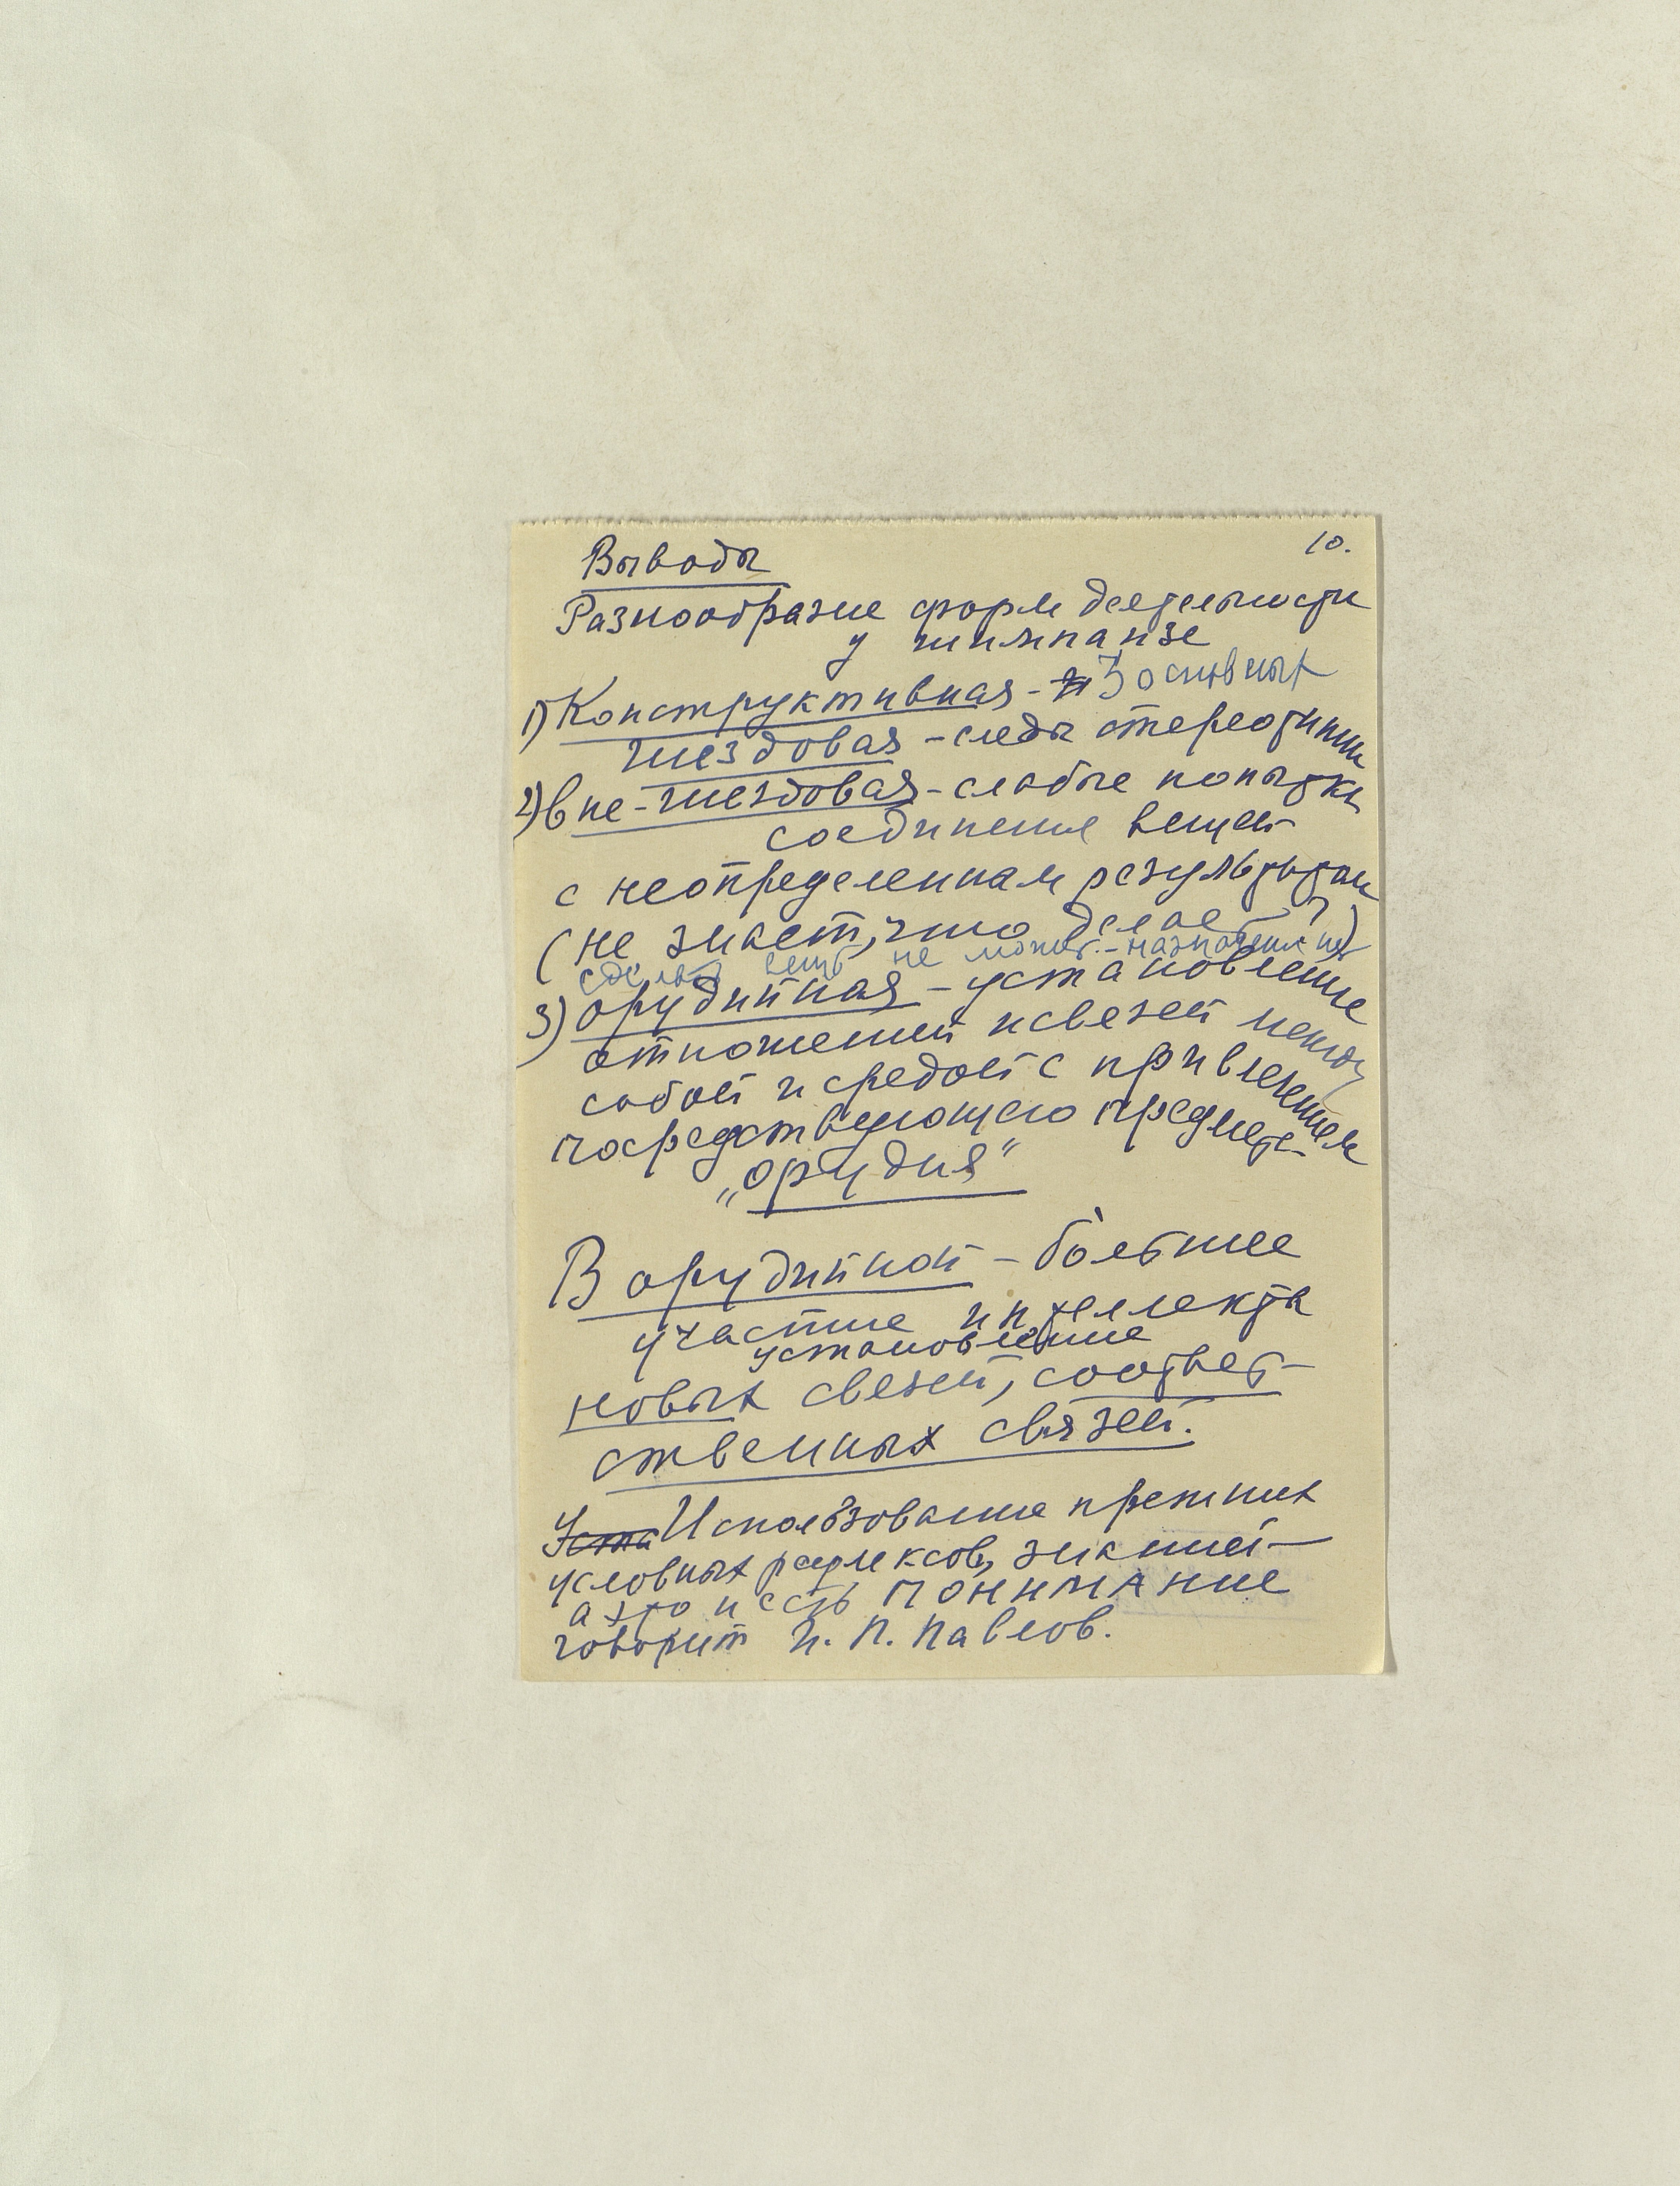 10.
Выводы
Разнообразие форм деятельности
у шимпанзе
1) Конструктивная - 3 основных
гнездовая - следы стереотипии
2) вне-гнездовая - слабые попытки
соединения вещей
с неопределенным результатом
(не знает, что делает?)
сделать вещь не может - назначения нет
3) орудийная - установление
отношений и связей между
собой и средой с привлечением
посредствующего предмета
„орудия"
В орудийной - большее
участие интеллекта
установление
новых связей, соответ-
ственных связей.
Уста Использование прежних
условных рефлексов, знаний -
а это и есть ПОНИМАНИЕ
говорит И. П. Павлов.